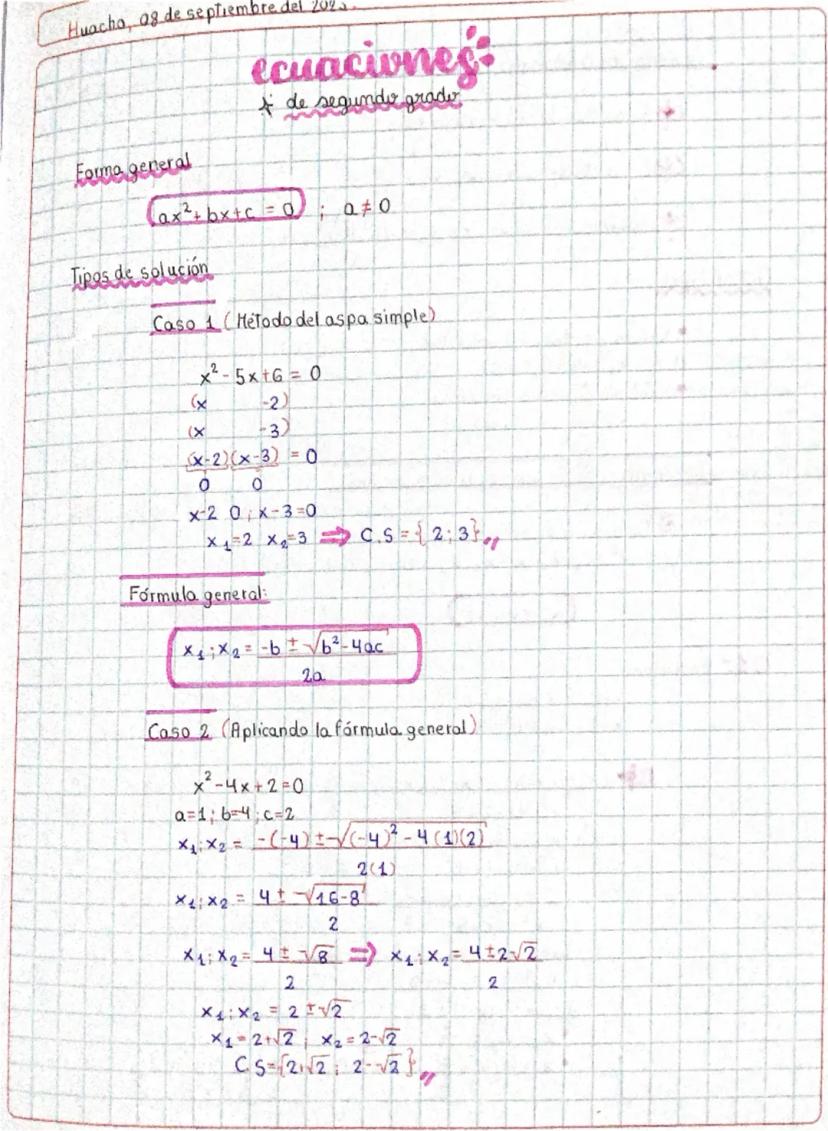 Huacho, 08 de septiembre del 2023.
ecuaciones
* de segundo grado
Forma general
ax²+bx+c = 0 ; a≠0
Tipos de solución
Caso 1 (Método del aspa simple)
x²-5x+6 = 0
(x -2)
(x -3)
(x-2)(x-3) = 0
0 0
x-2 0 ; x-3=0
x₁=2 x₂=3 ⇒ C.S = { 2 ; 3},,
Fórmula general:
x₁ ; x₂ = -b ± √b²-4ac
2a
Caso 2 (Aplicando la fórmula general)
x²-4x+2=0
a=1 ; b=4 ; c=2
x₁ ; x₂ = -(-4) ± √(-4)² - 4(1)(2)
2(1)
x₁ ; x₂ = 4 ± √16-8
2
x₁ ; x₂ = 4 ± √8 ⇒ x₁ ; x₂ = 4±2√2
2 2
x₁ ; x₂ = 2 ± √2
x₁ = 2+√2 ; x₂ = 2-√2
C.S={2+√2 ; 2-√2 },,